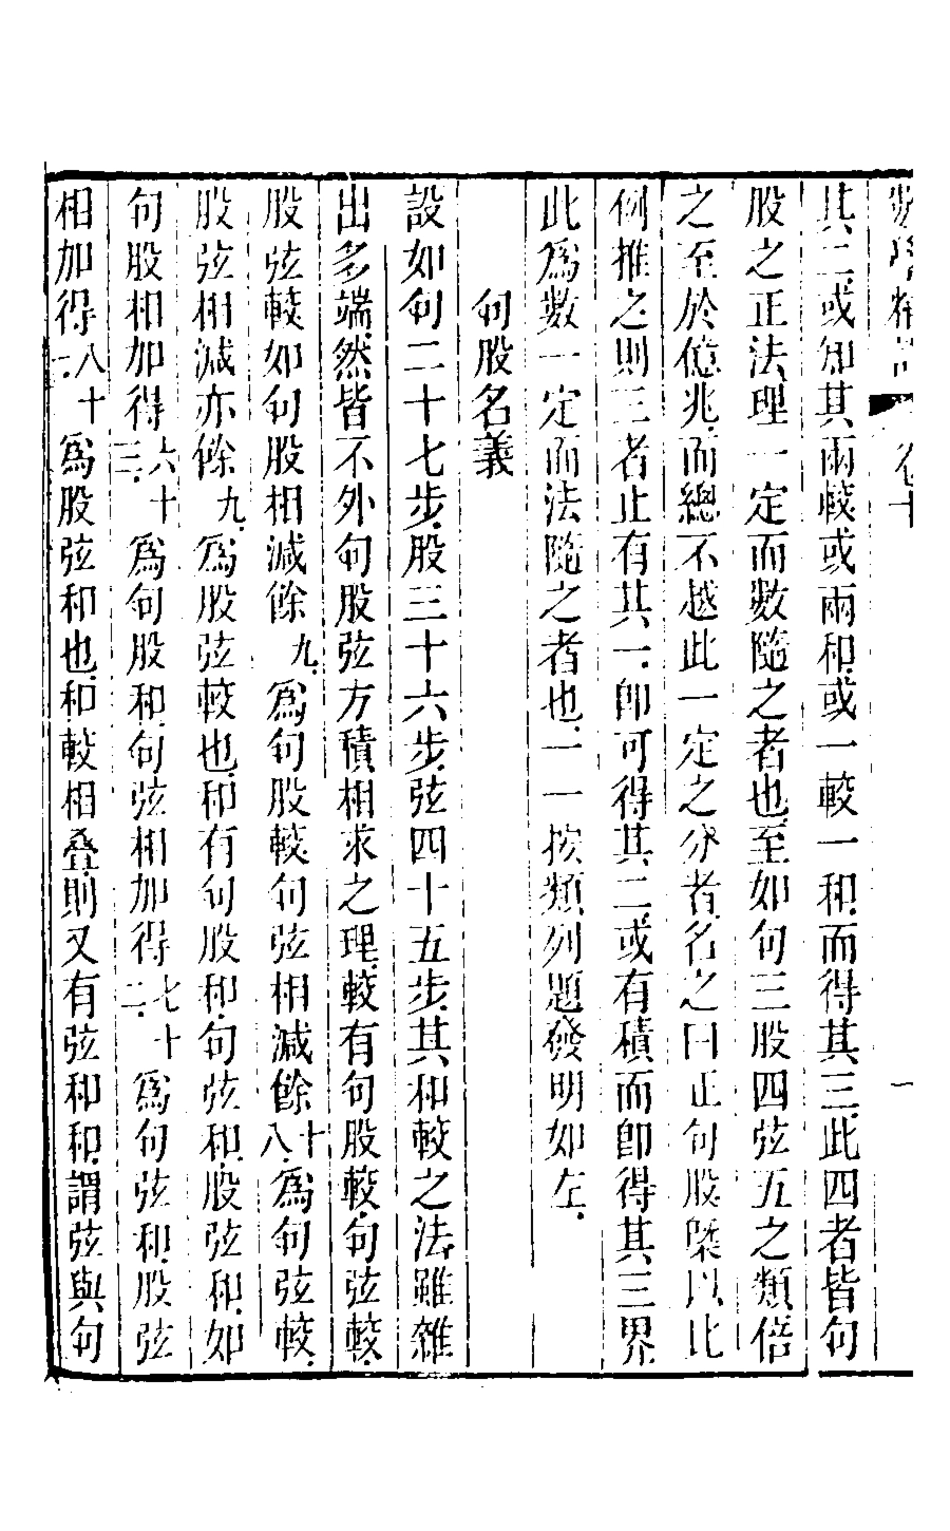 數學精詳 卷十 一
其二或知其兩較或兩和或一較一和而得其三此四者皆句
股之正法理一定而數隨之者也至如句三股四弦五之類倍
之至於億兆而總不越此一定之分者名之曰正句股槩以此
例推之則三者止有其一卽可得其二或有積而卽得其三界
此爲數一定而法隨之者也一一按類列題發明如左
句股名義
設如句二十七步股三十六步弦四十五步其和較之法雖雜
出多端然皆不外句股弦方積相求之理較有句股較句弦較
股弦較如句股相減餘九爲句股較句弦相減餘十八爲句弦較
股弦相減亦餘九爲股弦較也和有句股和句弦和股弦和如
句股相加得六十三爲句股和句弦相加得七十二爲句弦和股弦
相加得八十一爲股弦和也和較相叠則又有弦和和謂弦與句